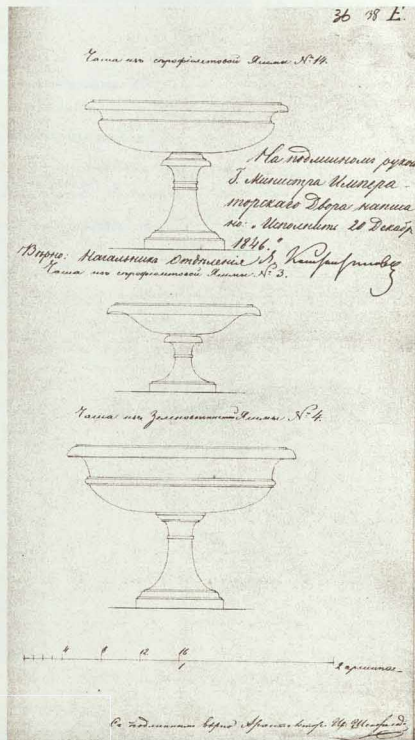 36 38 E.
Чаша изъ сѣрофіолетовой Яшмы № 14.
На подлинномъ рукою
Г. Министра Импера-
торскаго Двора написа
но: „Исполнить 20 Декабр.
1846."
Вѣрно: Начальникъ Отдѣленія
Чаша изъ сѣрофіолетовой Яшмы № 3.
Чаша изъ Зеленоватой Яшмы № 4.
4 8 12 16
1
2 аршина
Съ подлиннымъ вѣрно Архитекторъ И.